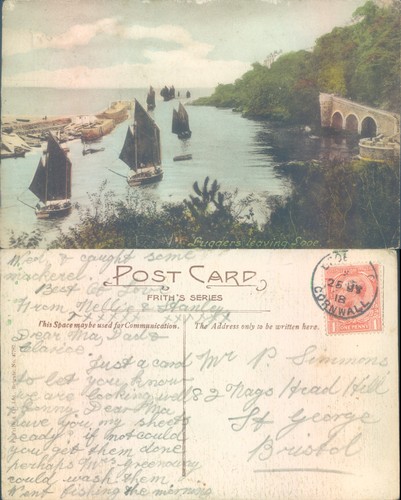 Luggers leaving Looe
Wed, & caught some
mackerel.
Best of Love
From Nellie & Stanley
XXXXXXXXX
POST CARD
FRITH'S SERIES
This Space may be used for Communication.
The Address only to be written here.
CORNWALL
18
Dear Ma, Dad &
Clarice
Just a card
to let you know
we are looking
& Dear Ma
have you my sheets
ready? if not could
you get them done
perhaps Mrs Greenway
could wash them
Went fishing the morning
Mr P. Simmons
82 Nags Head Hill
St George
Bristol